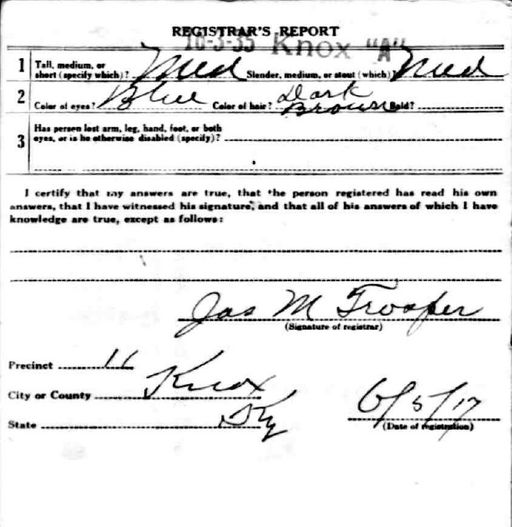 REGISTRAR'S REPORT
10-3-35 Knox "A"
1 Tall, medium, or short (specify which)? Med Slender, medium, or stout (which)? Med
2 Color of eyes? Blue Color of hair? Dark Brown Bald?
3 Has person lost arm, leg, hand, foot, or both
eyes, or is he otherwise disabled (specify)?
I certify that my answers are true, that the person registered has read his own
answers, that I have witnessed his signature, and that all of his answers of which I have
knowledge are true, except as follows:
Jas M
(Signature of registrar)
Precinct 11
City or County Knox
State Ky 6/5/17
(Date of registration)